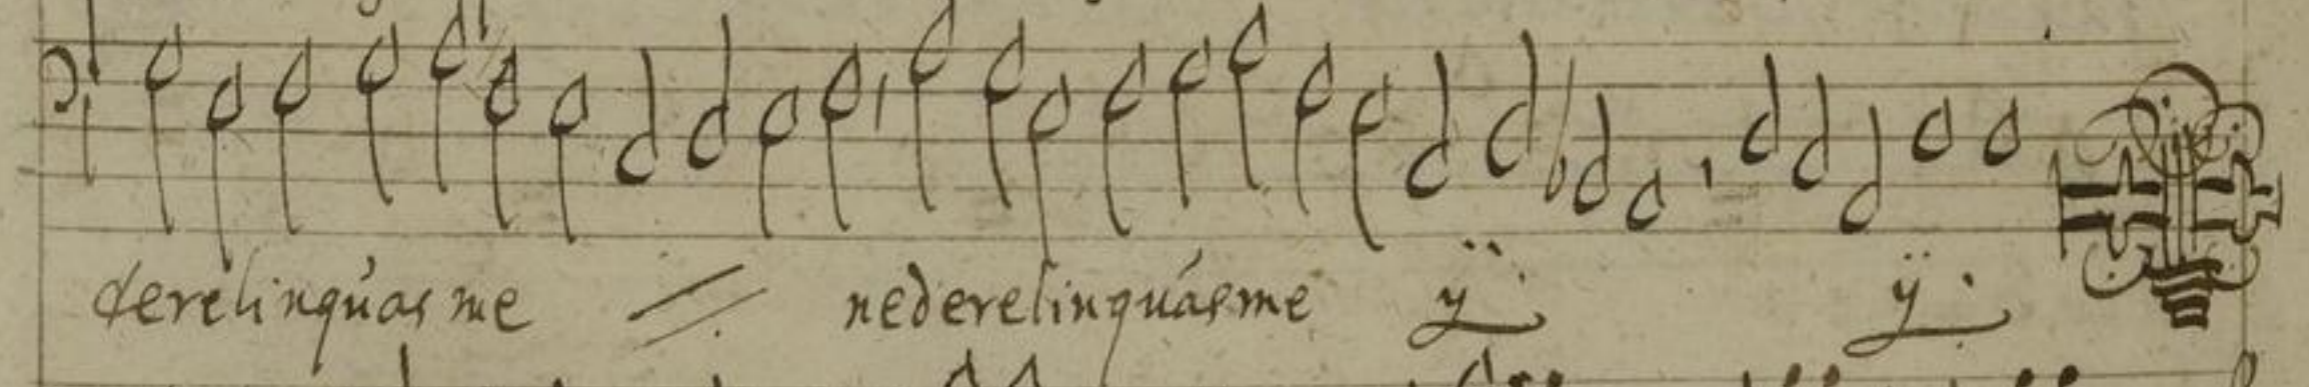 derelinquas me // nederelinquásme ÿ ÿ.